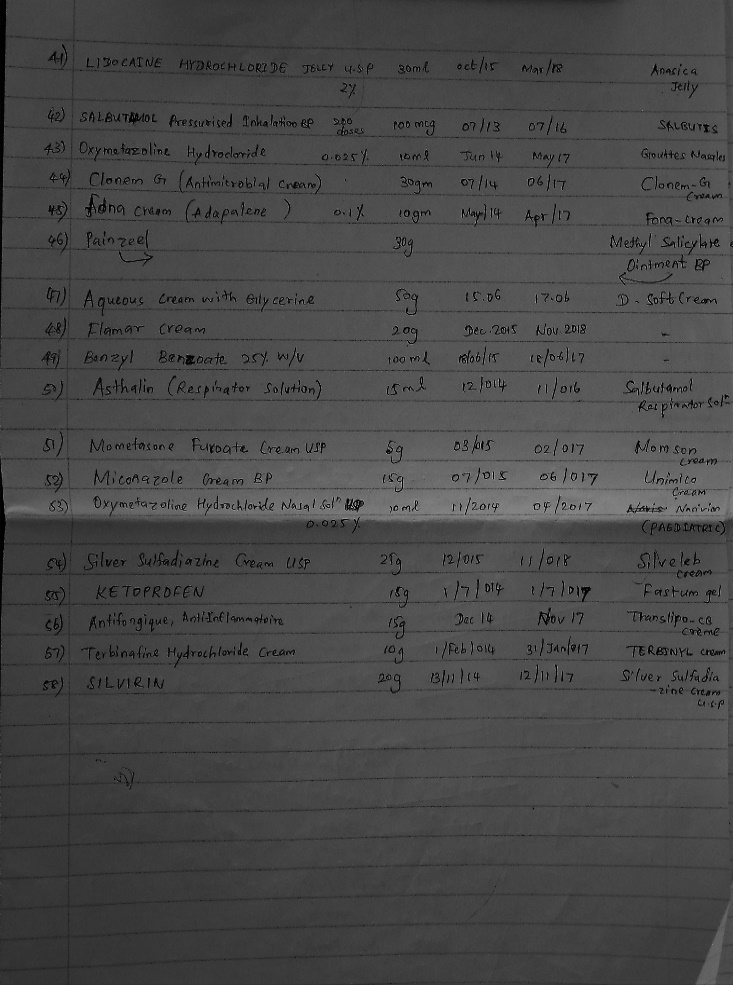 41) LIDOCAINE HYDROCHLORIDE JELLY U.S.P 30ml oct/15 Mar/18 Anasica
2% Jelly
42) SALBUTAMOL Pressurised Inhalation BP 200 doses 100 mcg 07/13 07/16 SALBUTIS
43) Oxymetazoline Hydrocloride 0.025% 10ml Jun 14 May 17 Gouttes Nasales
44) Clonem G (Antimicrobial Cream) 30gm 07/14 06/17 Clonem-G
Cream
45) Fona Cream (Adapalene ) 0.1% 10gm May/14 Apr/17 Fona-cream
46) Painzeel 30g Methyl Salicylate
Ointment BP
47) Aqueous Cream with Glycerine 50g 15.06 17.06 D-Soft Cream
48) Flamar Cream 20g Dec.2015 Nov.2018 -
49) Benzyl Benzoate 25% W/V 100ml /06/15 /06/17 -
50) Asthalin (Respirator Solution) 15ml 12/014 11/016 Salbutamol
Respirator Solⁿ
51) Mometasone Furoate Cream USP 5g 03/015 02/017 Momson
Cream
52) Miconazole Cream BP 15g 07/015 06/017 Unimico
Cream
53) Oxymetazoline Hydrochloride Nasal Solⁿ USP 10ml 11/2014 04/2017
0.025% (PAEDIATRIC)
54) Silver Sulfadiazine Cream USP 25g 12/015 11/018 Silveleb
Cream
55) KETOPROFEN 15g 1/7/014 1/7/017 Fastum gel
56) Antifongique, AntiInflammatoire 15g Dec 14 Nov 17 Translipo-CB
Creme
57) Terbinafine Hydrochloride Cream 10g 1/Feb/014 31/Jan/017 TERBINYL cream
58) SILVIRIN 20g 13/11/14 12/11/17 Silver Sulfadia
-zine Cream
U.S.P